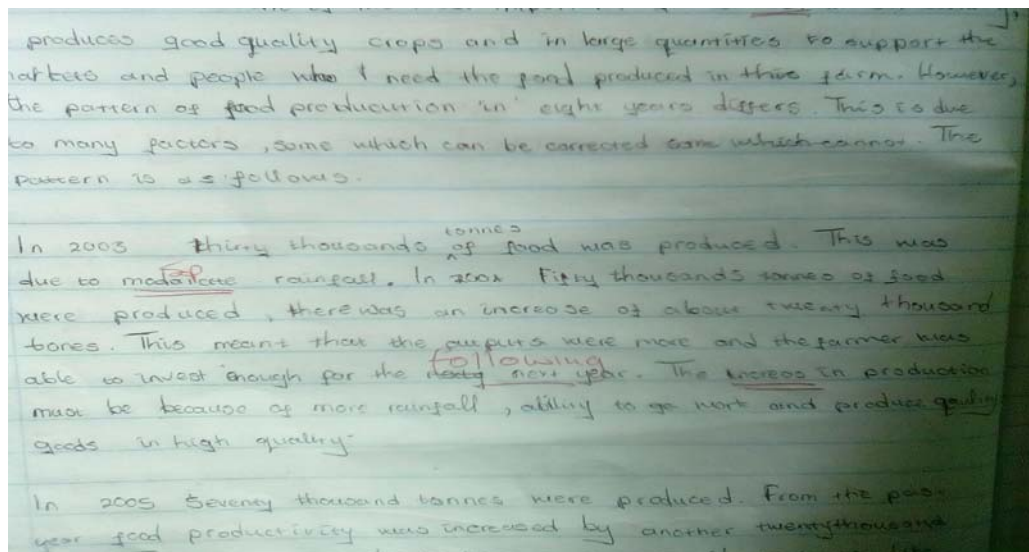 produces good quality crops and in large quantities to support the
arkets and people who need the food produced in this farm. However,
the pattern of food producution in eight years differs. This is due
to many factors, some which can be corrected some which cannot. The
pattern is as follows.
In 2003 thirty thousands of tonnes food was produced. This was
due to rainfall. In 200x Fifty thousands tonnes of food
were produced, there was an increase of about twenty thousand
tones. This meant that the outputs were more and the farmer was
following
able to invest enough for the next year. The increas in production
must be because of more rainfall, ability to go work and produce
goods in high quality.
In 2005 Seventy thousand tonnes were produced. From the pas
year food productivity was increased by another twentythousand